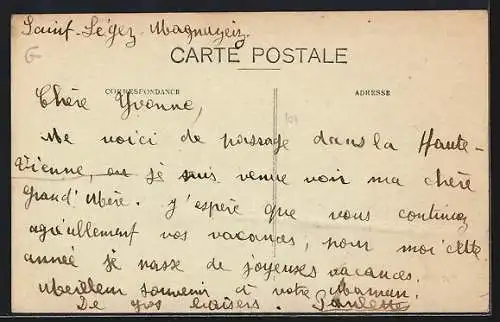 Saint-Léger-Magnazeix.
G
CARTE POSTALE
CORRESPONDANCE
ADRESSE
Chère Yvonne,
Me voici de passage dans la Haute-
Vienne, ou je suis venue voir ma chère
Grand'Mère. J'espère que vous continuez
agréablement vos vacances, pour moi cette
année je passe de joyeuses vacances.
Meilleur souvenir à votre Maman.
De gros baisers. Paulette